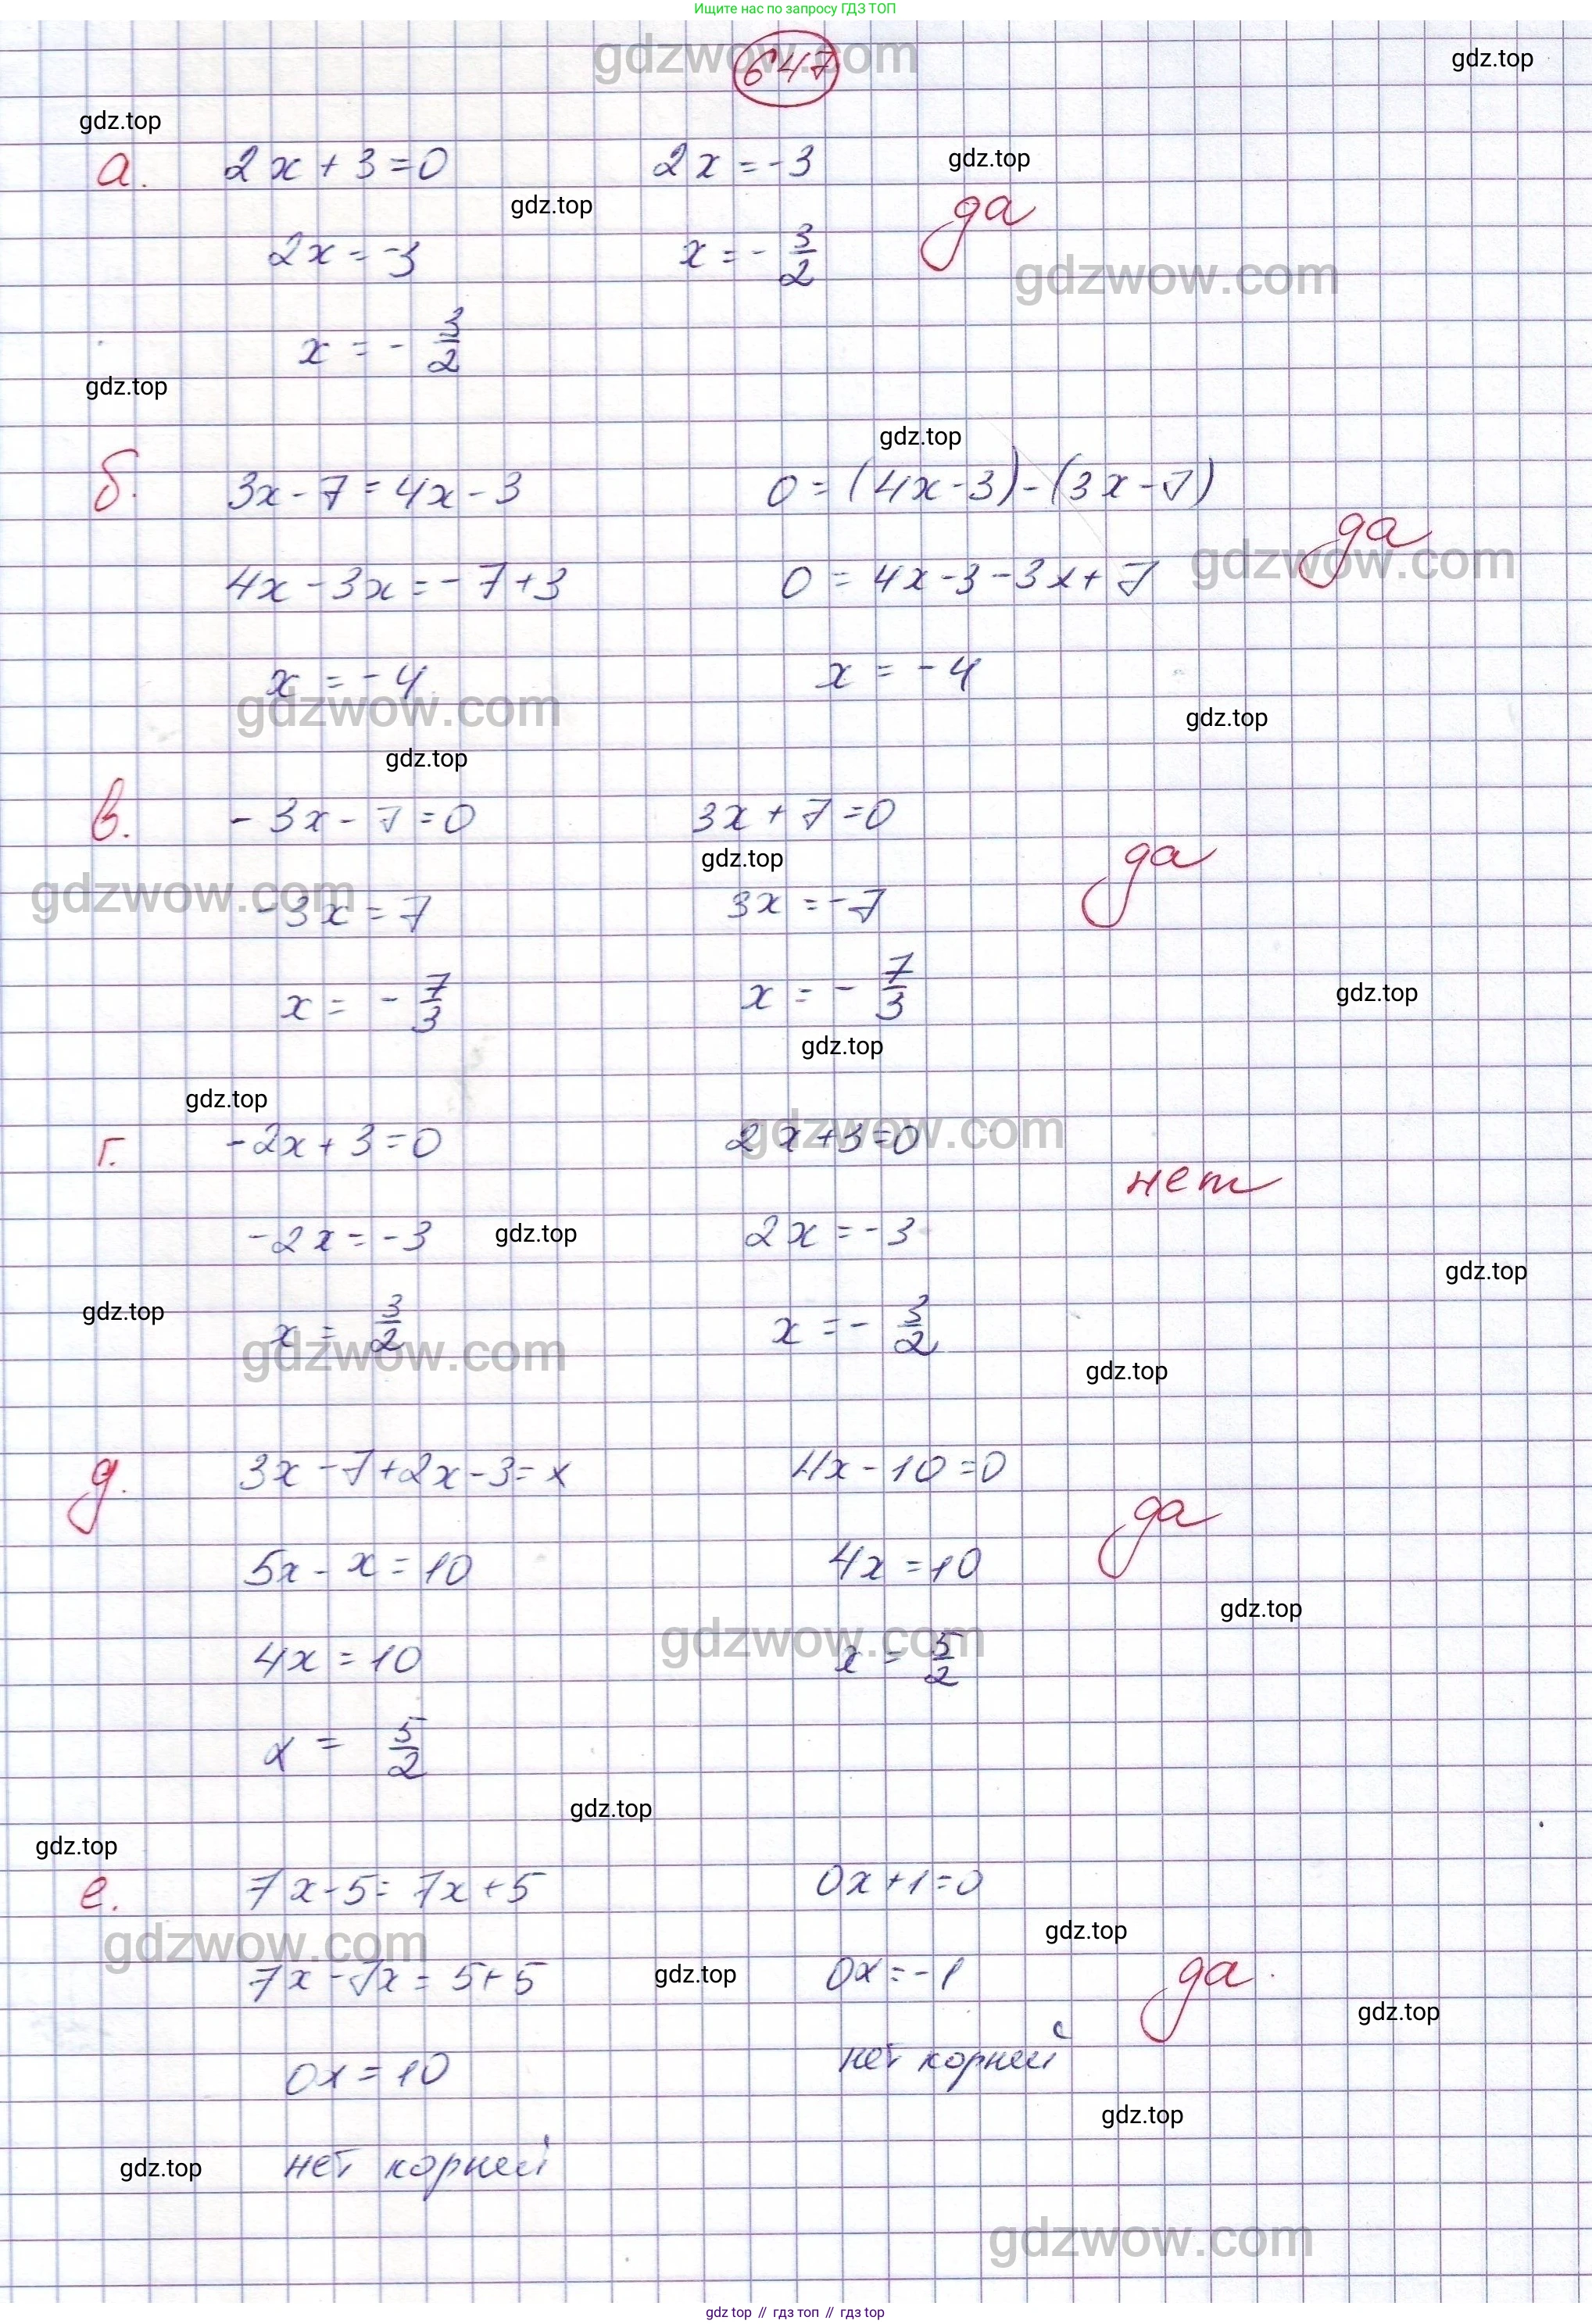 Ищите нас по запросу ГДЗ ТОП
gdzwow.com
647
gdz.top
gdz.top
а. 2x + 3 = 0 2x = -3
gdz.top
gdz.top
да
2x = -3 x = - 3/2
gdzwow.com
x = - 3/2
gdz.top
gdz.top
б. 3x - 7 = 4x - 3 0 = (4x - 3) - (3x - 7)
да
gdzwow.com
4x - 3x = - 7 + 3 0 = 4x - 3 - 3x + 7
x = - 4 x = - 4
gdzwow.com
gdz.top
gdz.top
в. - 3x - 7 = 0 3x + 7 = 0
gdz.top
да
gdzwow.com
-3x = 7 3x = -7
x = - 7/3 x = - 7/3
gdz.top
gdz.top
gdz.top
gdzwow.com
г. -2x + 3 = 0 2x + 3 = 0
нет
-2x = -3 2x = -3
gdz.top
gdz.top
gdz.top
x = 3/2 x = - 3/2
gdzwow.com
gdz.top
д. 3x - 7 + 2x - 3 = x 4x - 10 = 0
да
5x - x = 10 4x = 10
gdz.top
gdzwow.com
4x = 10 x = 5/2
x = 5/2
gdz.top
gdz.top
е. 7x - 5 = 7x + 5 0x + 1 = 0
gdz.top
gdzwow.com
7x - 7x = 5 + 5 0x = -1
gdz.top
да
gdz.top
0x = 10 нет корней
gdz.top
gdz.top
нет корней
gdzwow.com
gdz top // гдз топ // гдз top